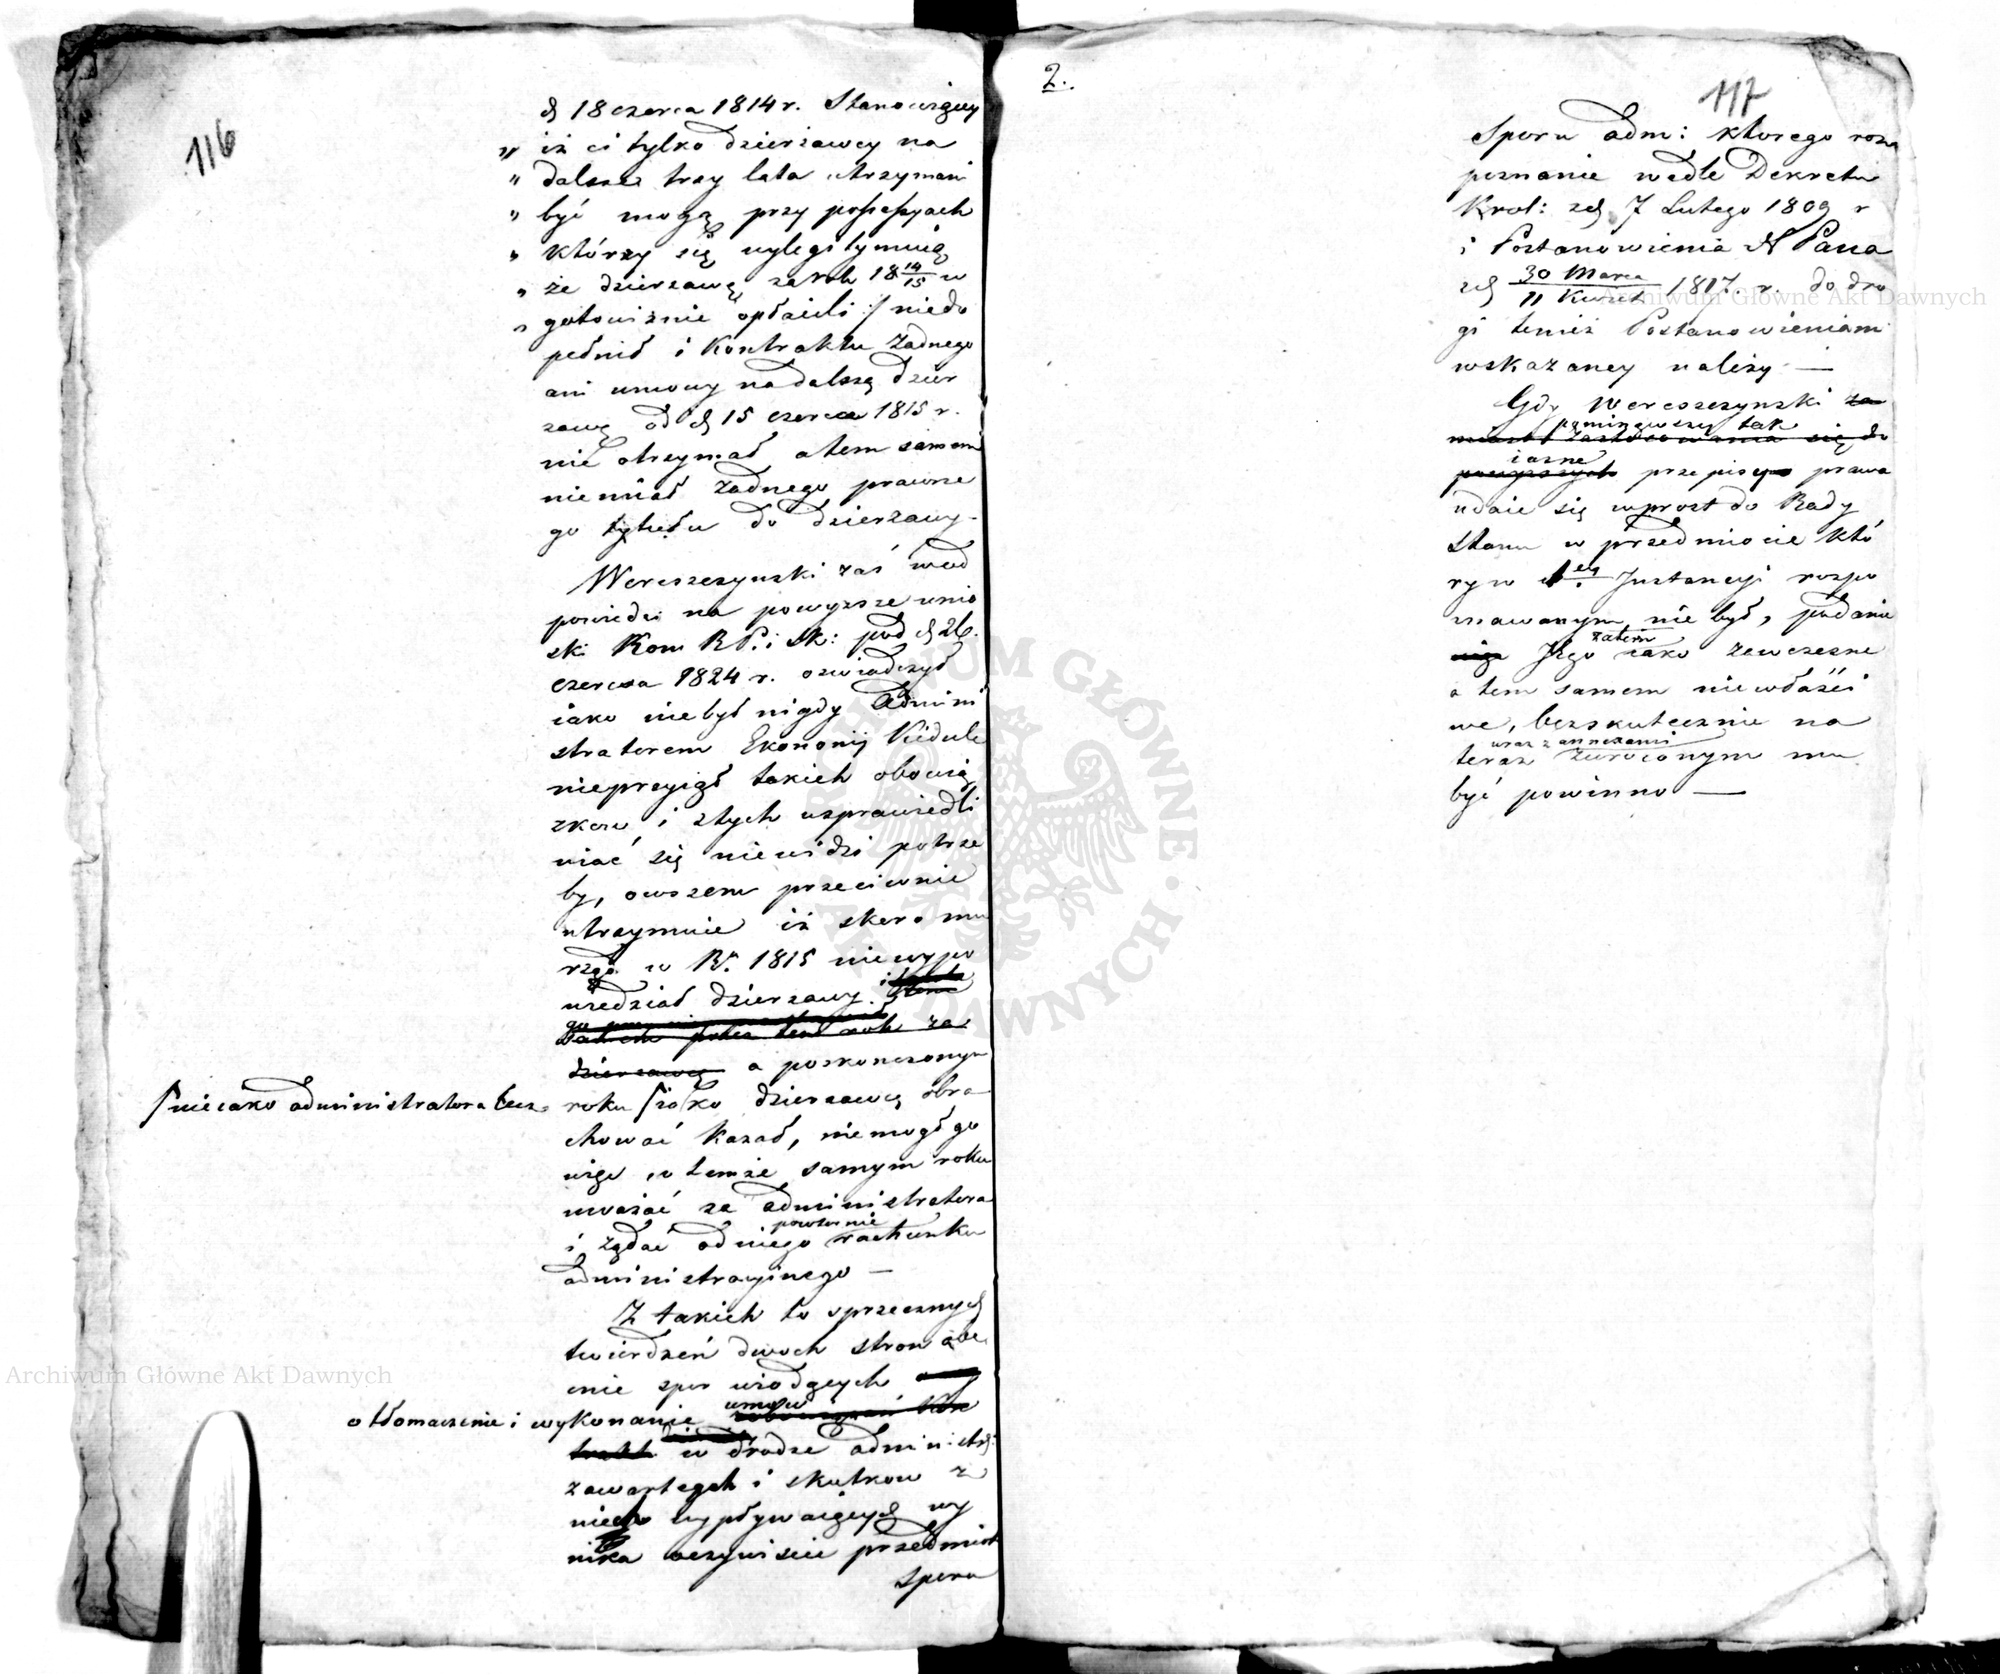 116
d 18 czerca 1814 r. Stanowiący
„ iż ci tylko dzierżawcy na
„ dalsze trzy lata utrzymani
„ być mogą przy possessyach
„ którzy się wylegitymuią
„ że dzierzawę za rok 18 14/15 w
„ gotowiźnie opłacili :/ niedo
pełnił i Kontraktu żadnego
ani umowy na dalszą dzier
zawę od d 15 czerca 1815 r.
nie otrzymał a tem samem
niemiał żadnego prawne
go tytułu do dzierżawy.
Wereszczynski zaś w od
powiedzi na powyższe wnio
ski Kom R P. i Sk: pod d 26.
czerwca 1824 r. oswiadczył
iako niebył nigdy Admini
stratorem Ekonomij Kidule
nieprzyiął takich obowią
zkow i z tych usprawiedli
wiać się niewidzi potrze
by, owszem przeciwnie
utrzymuie iż skoro mu
rząd w R. 1815 niewypo
wiedział dzierzawy i
dzierzawcę a poskonczonym
/ nie iako administratora lecz
roku / iako dzierzawcę obra
chować kazał, niemogł go
więc w temże samym roku
uważać za administratora
powtornie
i żądać od niego rachunku
administracyinego —
Z takich to sprzecznych
twierdzeń dwoch stron obe
cnie spor wiodących
umow
o tłomaczenie i wykonanie
w drodze administr:
zawartych i skutkow z
nich wypływaiących wy
nika oczywiscie przedmiot
sporu
2.
117
Sporu adm: ktorego roz
poznanie wedle Dekretu
Krol: z d 7 Lutego 1809 r
i Postanowienia N Pana
z d 30 Marca / 11 Kwiet 1817. r. do dro
gi temiż Postanowieniami
wskazaney należy —
Gdy Wereszczynski za
pominąwszy tak
miast zastosowania się do
iasne
powyższych przepisy prawa
udaie się wprost do Rady
Stanu w przedmiocie któ
ry w 1ey Instancyi rozpo
znawanym nie był, podanie
zatem
Jego iako zewczesne
a tem samem niewłaści
we, bezskutecznie na
wraz z annexami
teraz zwroconym mu
być powinno —
Archiwum Główne Akt Dawnych
Archiwum Główne Akt Dawnych
ARCHIWUM GŁÓWNE AKT DAWNYCH